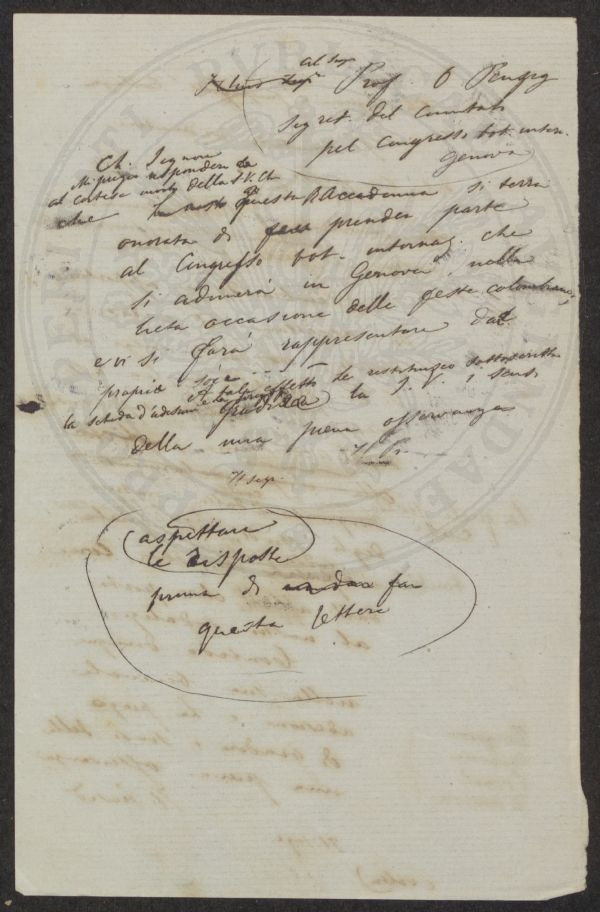 al Sigr
Prof. O Penzig
Segret. del Comitato
pel Congresso bot. intern.
Genova
Ch. Signore
Mi pregio rispondere
al cortese invito della S.V. Ch
che questa R Accademia si terrà
onorata di prender parte
al Congresso bot. internaz. che
si adunerà in Genova nella
lieta occasione delle feste colombiane,
e vi si farà rappresentare dal
proprio
le restituisco sottoscritta
la scheda d'adesione
la S. V. i sensi
della mia piena osservanza
Il Pr.
Il Segr.
aspettare
le risposte
prima di far
questa lettera